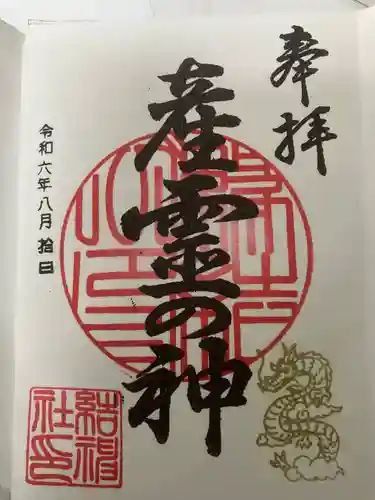 奉拝
産霊の神
令和六年八月拾日
結神社印